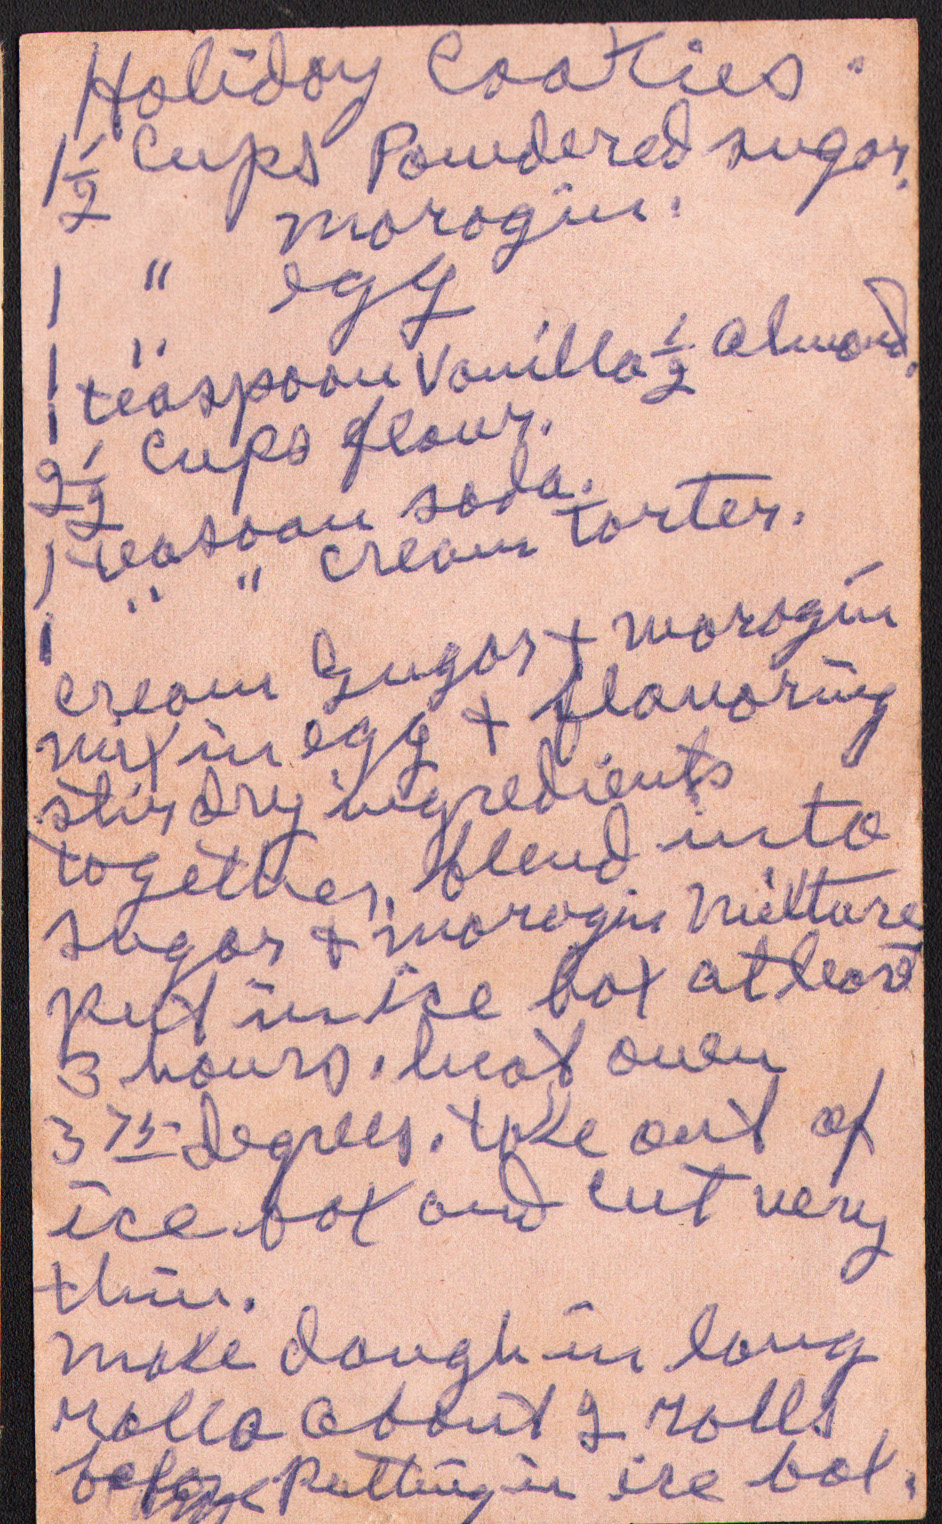 Holiday Cookies.
1 1/2 Cups Powdered sugar.
1 " marogin.
1 " egg
1 teaspoon Vanilla 1/2 almond.
2 1/2 Cups flour.
1 teasoan soda.
1 " " cream tarter.
cream Sugar + marogin
mix in egg + flavoring
stir dry ingredients
together, blend into
sugar + marogin mixture
put in ice box at least
3 hours. heat oven
375 degrees. take out of
ice box and cut very
thin.
make dough in long
rolls about 2 rolls
before Putting in ice box.